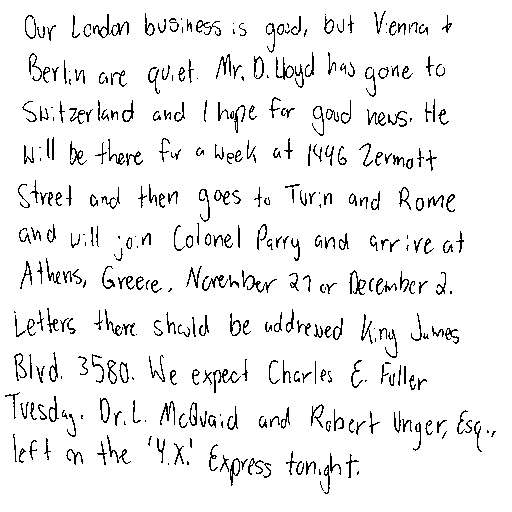 Our London business is good, but Vienna +
Berlin are quiet. Mr. D. Lloyd has gone to
Switzerland and I hope for good news. He
will be there for a week at 1446 Zermott
Street and then goes to Turin and Rome
and will join Colonel Parry and arrive at
Athens, Greece, November 27 or December 2.
Letters there should be addressed King James
Blvd. 3580. We expect Charles E. Fuller
Tuesday. Dr. L. McQuaid and Robert Unger, Esq.,
left on the 'Y.X.' Express tonight.